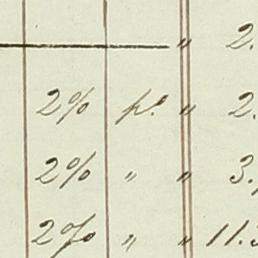 " 2.
2% p.º " 2.
2% " " 3.
2% " " 11.3